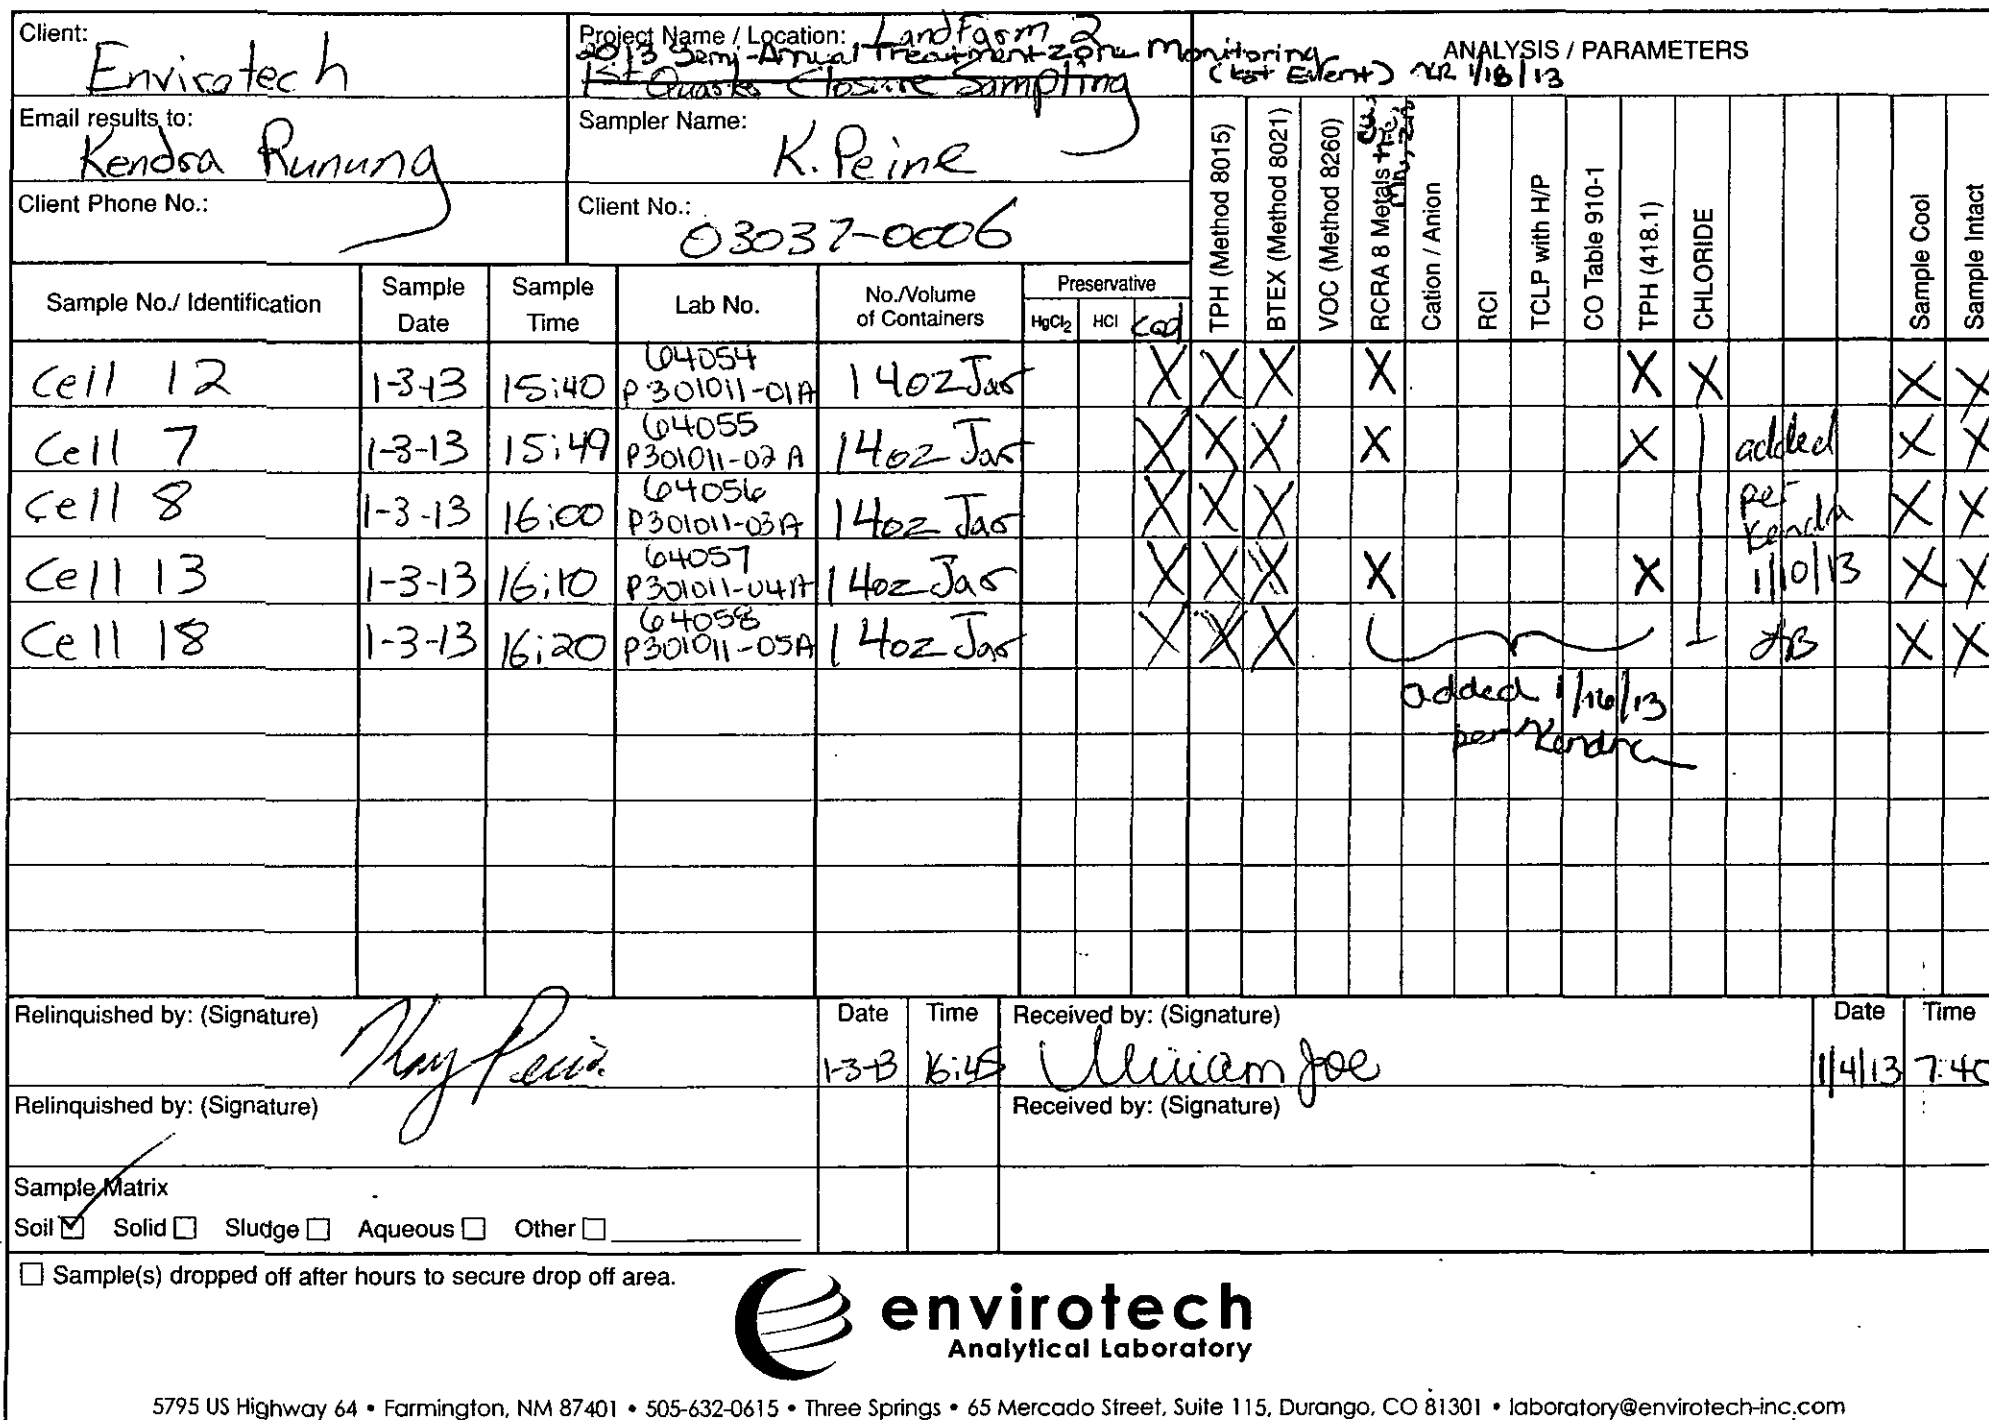 Client: Envirotech
Project Name / Location: LandFarm 2
2013 Semi-Annual Treatment Zone Monitoring
(1st Event) KR 1/18/13
1st Quarter Closure Sampling
ANALYSIS / PARAMETERS
Email results to: Kendra Runung
Sampler Name: K. Peine
Client Phone No.:
Client No.: 03037-0006
Sample No./ Identification
Sample Date
Sample Time
Lab No.
No./Volume of Containers
Preservative
HgCl2 HCl Cool
TPH (Method 8015)
BTEX (Method 8021)
VOC (Method 8260)
RCRA 8 Metals
Cation / Anion
RCI
TCLP with H/P
CO Table 910-1
TPH (418.1)
CHLORIDE
Sample Cool
Sample Intact
Cell 12 1-3-13 15:40 64054 P301011-01A 1 4oz Jar X X X X X X X X
Cell 7 1-3-13 15:49 64055 P301011-02A 1 4oz Jar X X X X X added X X
Cell 8 1-3-13 16:00 64056 P301011-03A 1 4oz Jar X X X per Kendra X X
Cell 13 1-3-13 16:10 64057 P301011-04A 1 4oz Jar X X X X X 1/10/13 X X
Cell 18 1-3-13 16:20 64058 P301011-05A 1 4oz Jar X X X X X
added 1/16/13
per Kendra
Relinquished by: (Signature)
Date
Time
Received by: (Signature)
Date
Time
1-3-13 16:45 Miriam Joe 1/4/13 7:40
Relinquished by: (Signature)
Received by: (Signature)
Sample Matrix
Soil Solid Sludge Aqueous Other
Sample(s) dropped off after hours to secure drop off area.
envirotech
Analytical Laboratory
5795 US Highway 64 • Farmington, NM 87401 • 505-632-0615 • Three Springs • 65 Mercado Street, Suite 115, Durango, CO 81301 • laboratory@envirotech-inc.com